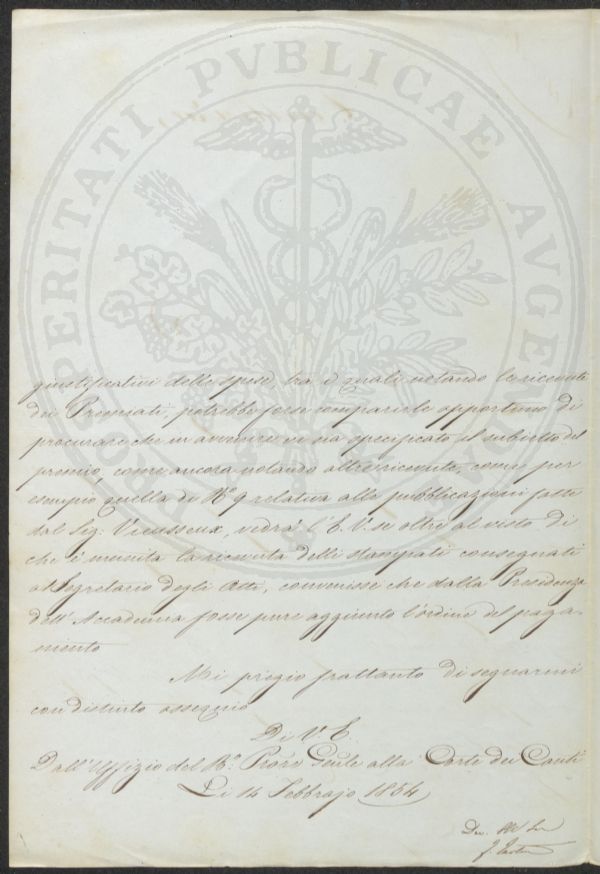 PROSPERITATI PVBLICAE AVGENDAE
giustificativi delle spese, tra i quali notando le ricevute
dei Premiati, potrebbe forse comparirle opportuno di
procurare che in avvenire vi sia specificato il subietto del
premio, come ancora notando altre ricevute, come per
esempio quella di N.º 9 relativa alle pubblicazioni fatte
dal Sig: Vieusseux, vedrà l'E. V. se oltre al visto di
che è munita la ricevuta delli stampati consegnati
al Segretario degli Atti, convenisse che dalla Presidenza
dell'Accademia fosse pure aggiunto l'ordine del paga-
mento
Mi pregio frattanto di segnarmi
con distinto ossequio
Di V. E.
Dall'Uffizio del R.º Proc.re Gen̄le alla Corte dei Conti
Li 14 Febbrajo 1854